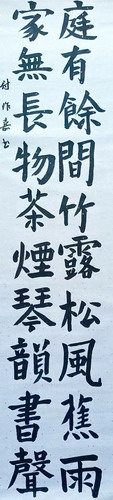 庭有餘間竹露松風蕉雨
家無長物茶煙琴韻書聲